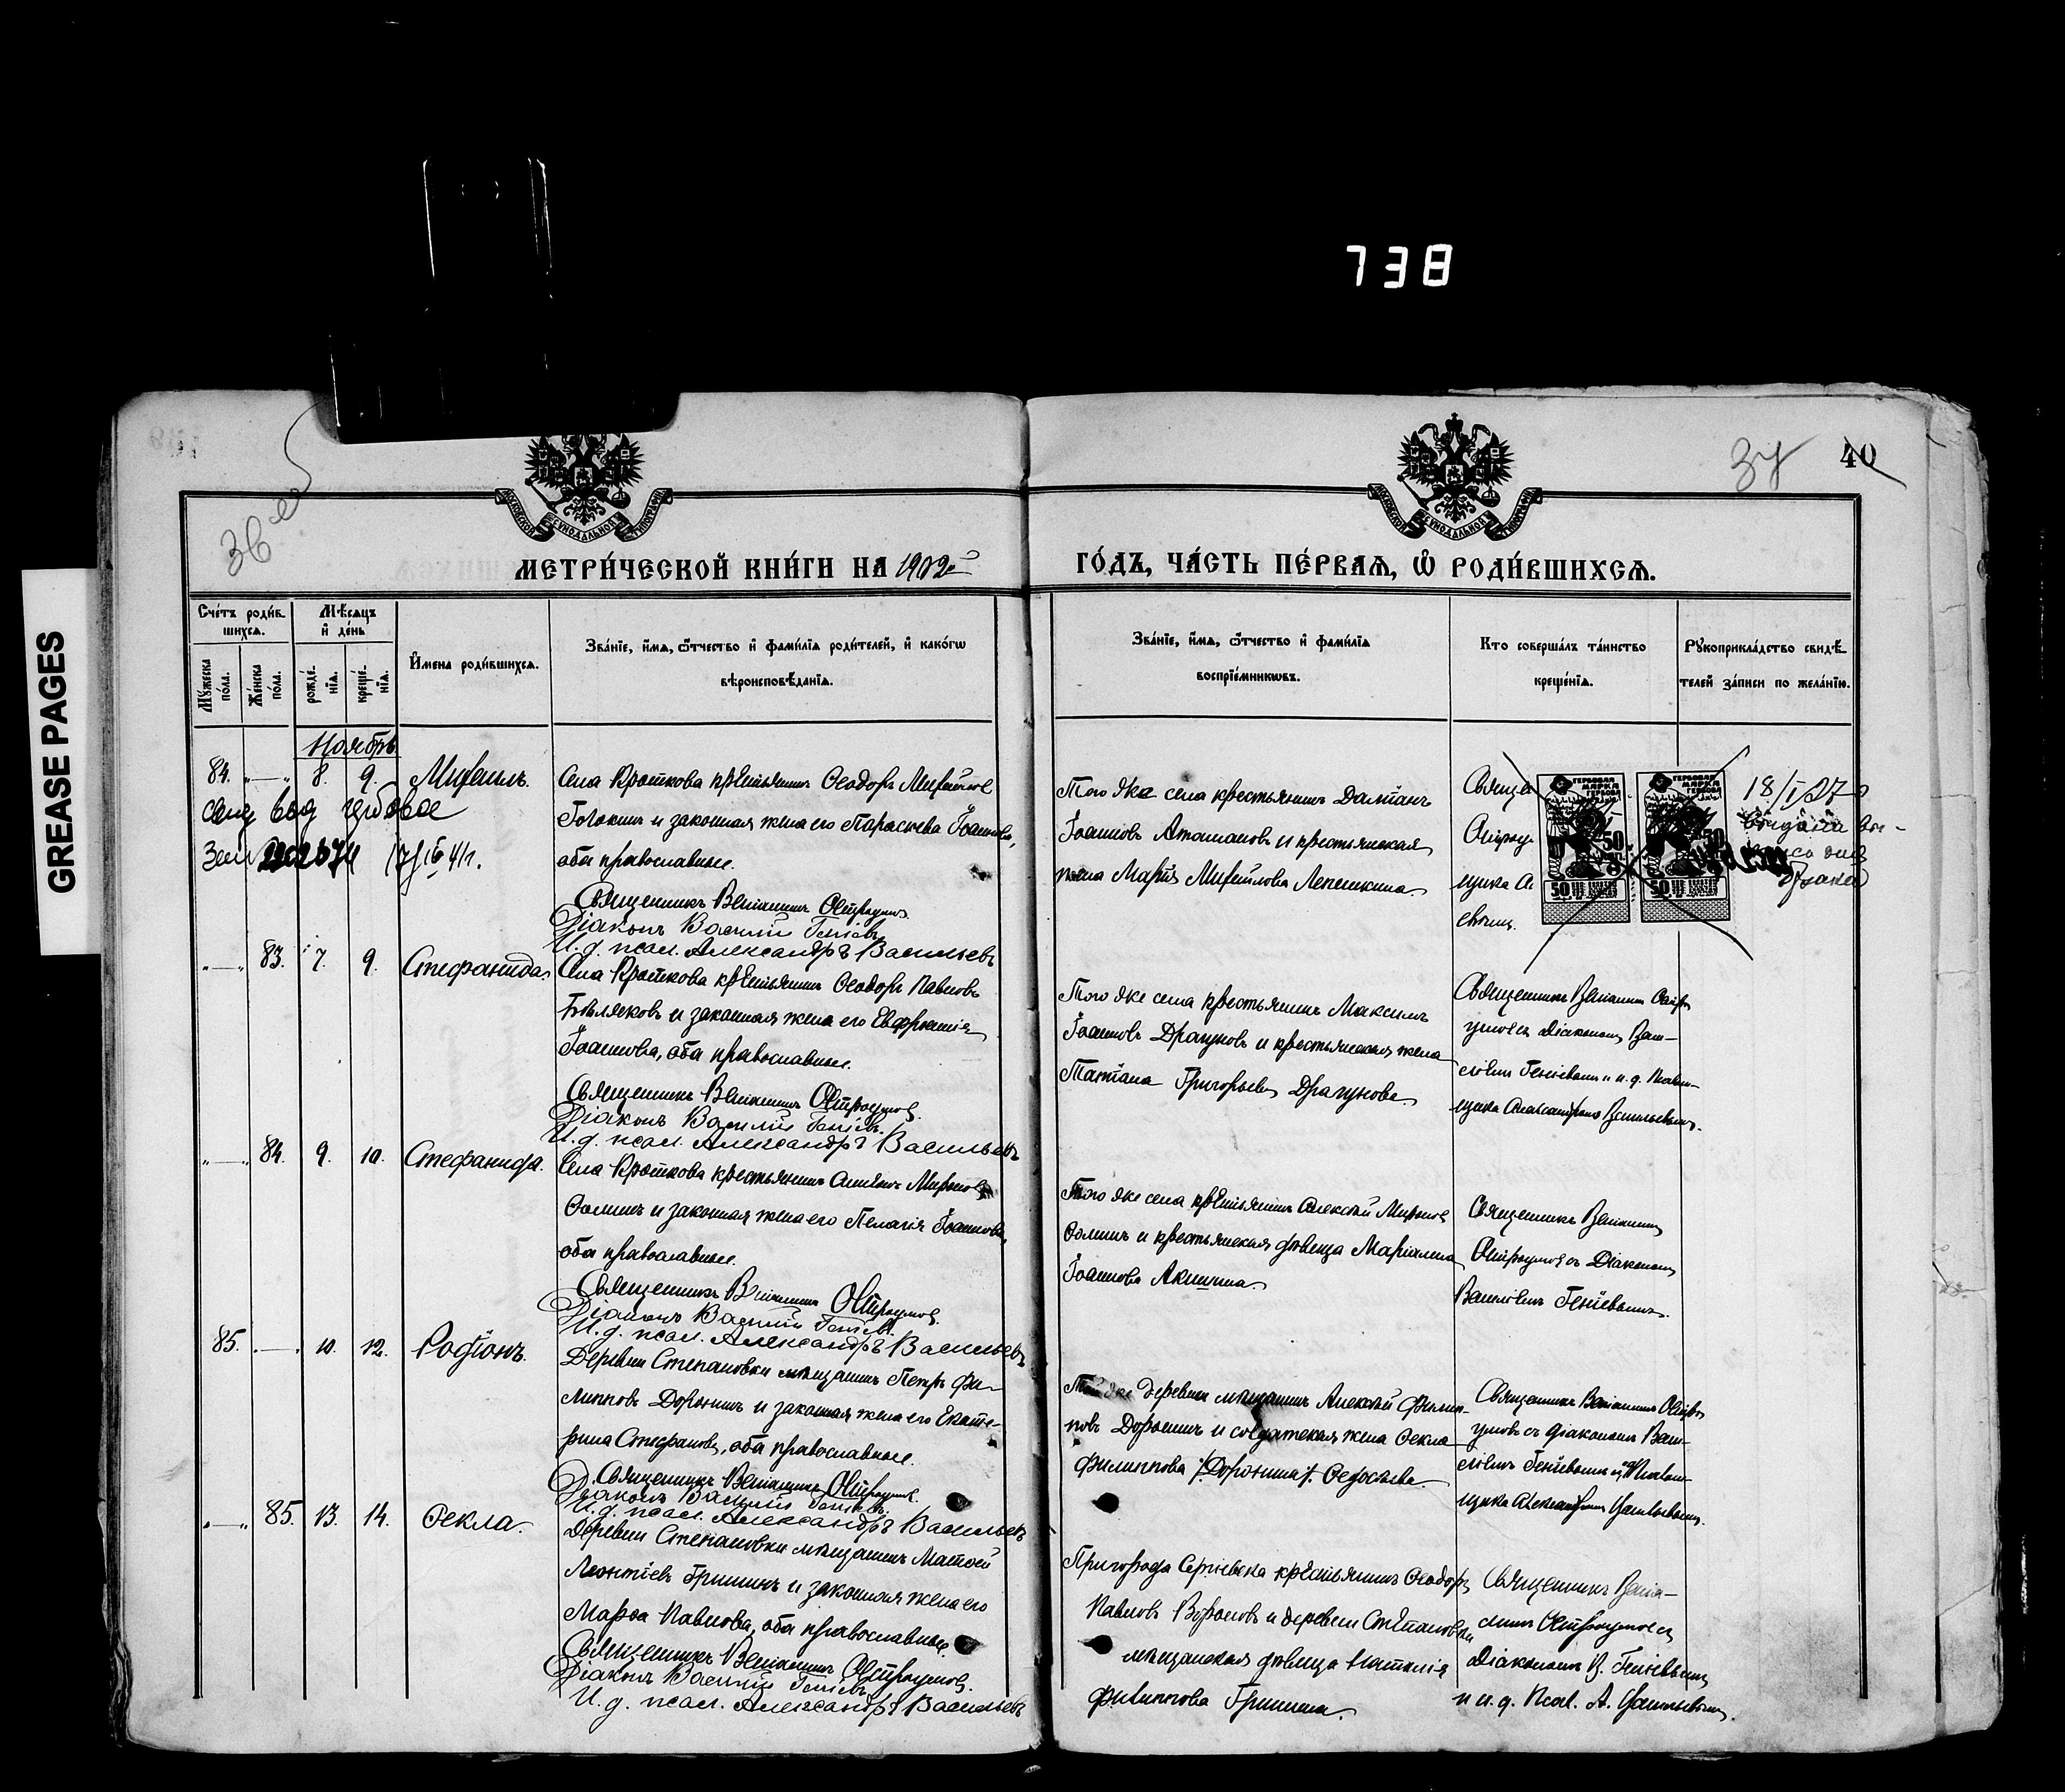 738
GREASE PAGES
36
37
40
МОСКОВСКОЙ СѴНОДАЛЬНОЙ ТИПОГРАФІИ
МОСКОВСКОЙ СѴНОДАЛЬНОЙ ТИПОГРАФІИ
МЕТРИ́ЧЕСКОЙ КНИ́ГИ НА 1902й
ГО́ДЪ, ЧА́СТЬ ПЕ́РВАѦ, Ѡ҆ РОДИ́ВШИХСѦ.
Сче́тъ роди́в-
шихсѧ.
Мѣ́сѧцъ
и҆ де́нь
Мꙋ́жеска по́ла.
Же́нска по́ла.
рожде́-
нїѧ.
креще́-
нїѧ.
И҆мена роди́вшихсѧ.
Зва́нїе, и҆́мѧ, ѻ҆́тчество и҆ фами́лїѧ роди́телей, и҆ како́гѡ
вѣроисповѣ́данїѧ.
Зва́нїе, и҆́мѧ, ѻ҆́тчество и҆ фами́лїѧ
воспрїе́мникѡвъ.
Кто соверша́лъ та́инство
креще́нїѧ.
Рꙋкоприкла́дство свидѣ́-
телей за́писи по жела́нїю.
Ноябрь.
84. „—„ 8. 9. Михаилъ.
Села Кроткова крестьянинъ Ѳеодоръ Михайловъ
и законная жена его Параскева Іоаннова,
оба православные.
Священникъ Веніаминъ Остроумов.
Діаконъ Василій Геніевъ
И. д. псал. Александръ Васильевъ
Того же села крестьянинъ Даміанъ
Іоанновъ Аташановъ и крестьянская
жена Марія Михайлова Лепешкина
Остроу
щика А.
евымъ.
ГЕРБОВАЯ
МАРКА
50
50
ГЕРБОВАЯ
МАРКА
50
50
18/I 27
„—„ 83. 7. 9. Стефанида.
Села Кроткова крестьянинъ Ѳеодоръ Павловъ
Бѣляковъ и законная жена его Евфросинія
Іоаннова, оба православные.
Священникъ Веніаминъ Остроумов.
Діаконъ Василій Геніевъ.
И. д. псал. Александръ Васильевъ
Того же села крестьянинъ Максимъ
Іоанновъ Драгуновъ и крестьянская жена
Татіана Григорьева Драгунова
Священникъ Веніаминъ Остро-
умовъ съ Діакономъ Васи-
ліемъ Геніевымъ и и. д. псалом-
щика Александромъ Васильевымъ.
„—„ 84. 9. 10. Стефанида.
Села Кроткова крестьянинъ Мироновъ
Ѳоминъ и законная жена его Пелагія Іоаннова,
оба православные.
Священникъ Веніаминъ Остроумов.
Діаконъ Василій Геніевъ.
И. д. псал. Александръ Васильевъ
Того же села крестьянинъ Алексѣй Мироновъ
Ѳоминъ и крестьянская дѣвица Маріанна
Іоаннова Акишина
Священникъ Веніаминъ
Остроумовъ съ Діакономъ
Василіемъ Геніевымъ.
85. „—„ 10. 12. Родіонъ.
Деревни Степановки мѣщанинъ Петръ Фи-
липповъ Доронинъ и законная жена его Екате-
рина Стефанова, оба православные.
Священникъ Веніаминъ Остроумов.
Діаконъ Василій Геніевъ.
И. д. псал. Александръ Васильевъ
Той же деревни мѣщанинъ Алексѣй Филип-
повъ Доронинъ и солдатская жена Ѳекла
Филиппова /Доронина/ Ѳедосѣева
Священникъ Веніаминъ Остро-
умовъ съ діакономъ Васи-
ліемъ Геніевымъ и и.д. Псалом-
щика Александромъ Васильевымъ.
„—„ 85. 13. 14. Ѳекла.
Деревни Степановки мѣщанинъ Матѳей
Леонтіевъ Гришинъ и законная жена его
Марѳа Павлова, оба православные.
Священникъ Веніаминъ Остроумов.
Діаконъ Василій Геніевъ
И. д. псал. Александръ Васильевъ
Пригорода Сергіевска крестьянинъ Ѳеодоръ
Павловъ Вороновъ и деревни Степановки
мѣщанская дѣвица Наталія
Филиппова Гришина.
Священникъ Веніа-
минъ Остроумовъ съ
Діакономъ В. Геніевымъ
и и. д. Псал. А. Васильевымъ.